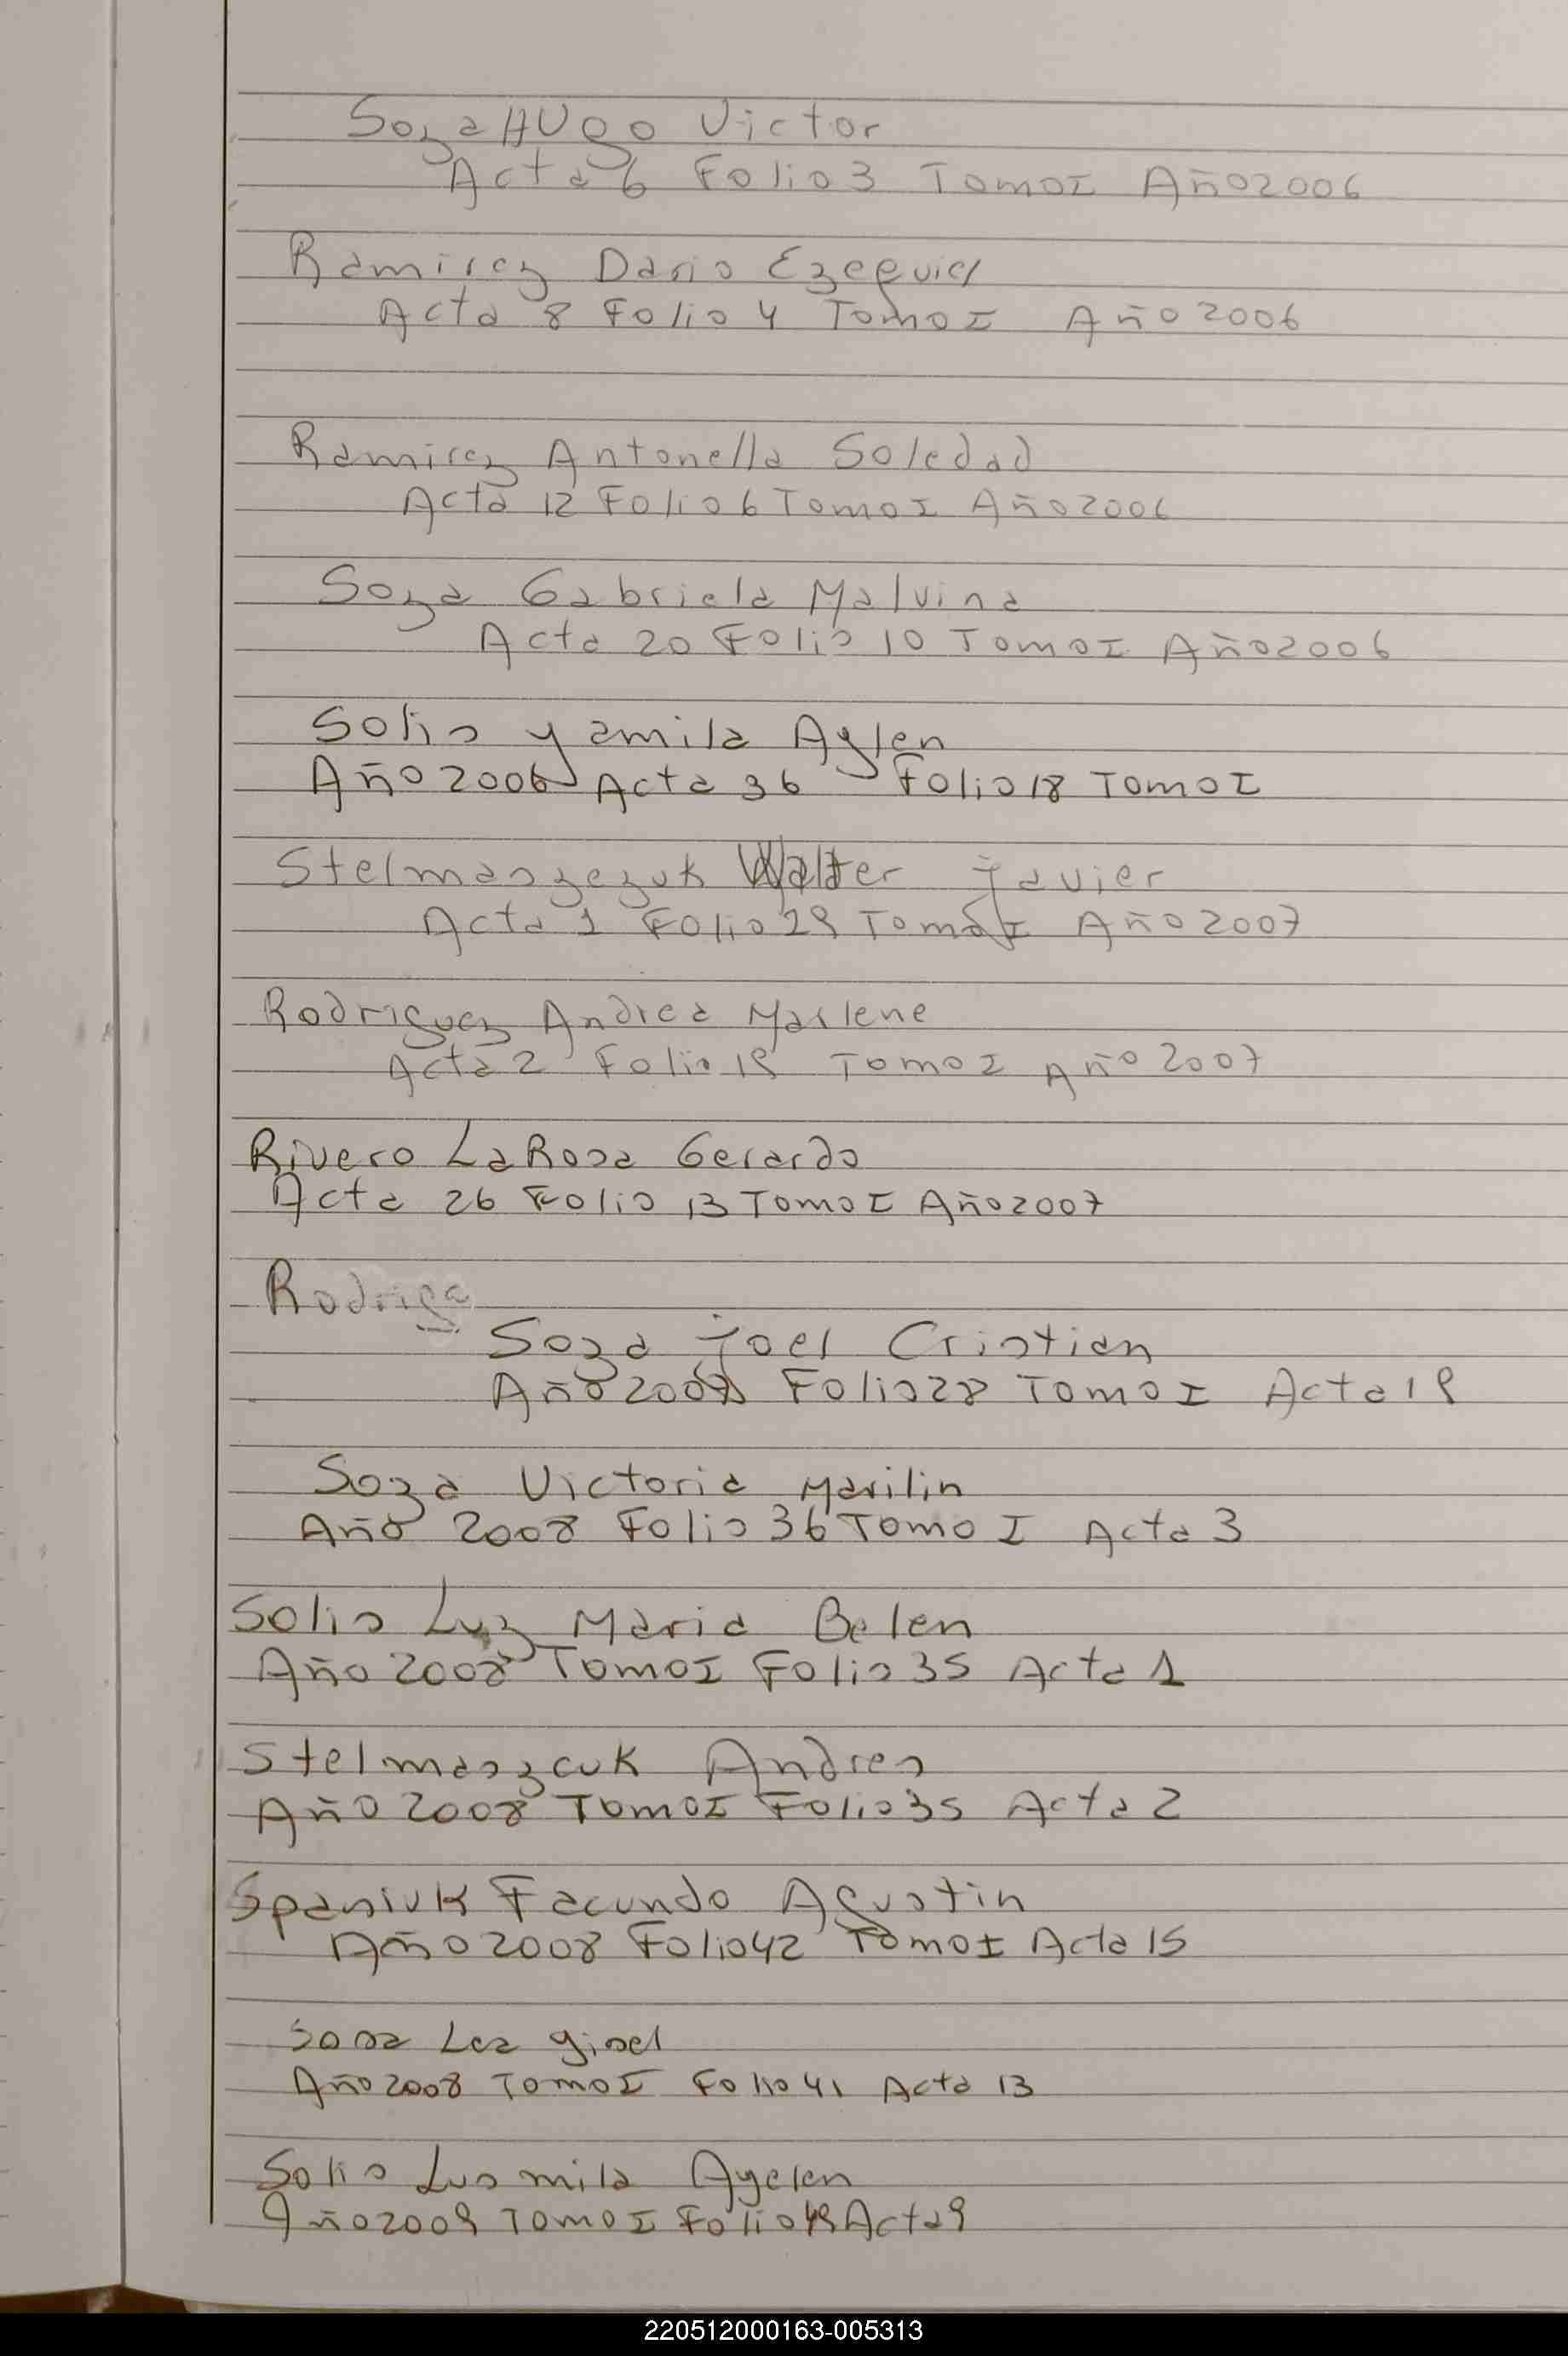 Soza HUgo Victor
Acta 6 Folio 3 Tomo I Año 2006
Ramirez Dario Ezequiel
Acta 8 Folio 4 Tomo I Año 2006
Ramirez Antonella Soledad
Acta 12 Folio 6 Tomo I Año 2006
Soza Gabriela Malvina
Acta 20 Folio 10 Tomo I Año 2006
Solis yamila Aylen
Año 2006 Acta 36 Folio 18 Tomo I
Stelmaszezuk Walter Javier
Acta 1 Folio Tomo I Año 2007
Rodriguez Andrea Marlene
Acta 2 Folio 19 Tomo I Año 2007
Rivero La Rosa Gerardo
Acta 26 Folio 13 Tomo I Año 2007
Rodrig
Soza Joel Cristian
Año Folio 28 Tomo I Acta 19
Soza Victoria Marilin
Año 2008 Folio 36 Tomo I Acta 3
Solis Luz Maria Belen
Año 2008 Tomo I Folio 35 Acta 1
Stelmaszcuk Andres
Año 2008 Tomo I Folio 35 Acta 2
Spasiuk Facundo Agustin
Año 2008 Folio 42 Tomo I Acta 15
Sosa Lea gisel
Año 2008 Tomo I Folio 41 Acta 13
Solis Lusmila Ayelen
Año 2009 Tomo I Folio Acta 9
220512000163-005313